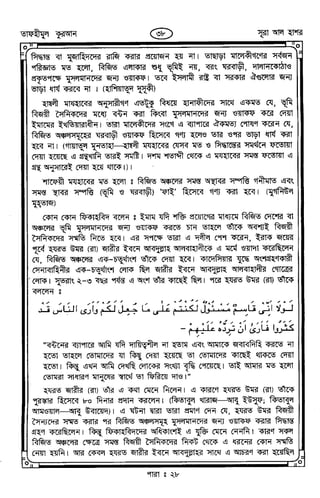 তাফহীমুল কুরআন
৩৮
সূরা আল হাশর
সিদ্ধান্ত বা মুজাহিদদের রাজি করার প্রয়োজন হয় না। তাছাড়া মালেকীগণের সর্বজন
পরিজ্ঞাত মত হলো, বিজিত এলাকার শুধু ভূমিই নয়, বরং ঘরবাড়ী, দালানকোঠাও
প্রকৃতপক্ষে মুসলমানদের জন্য ওয়াকফ। তবে ইসলামী রাষ্ট্র বা সরকার ঐগুলোর জন্য
ভাড়া ধার্য করবে না। (হাশিয়াতুদ দুসুকী)
হাম্বলী মাযহাবের অনুসারীগণ এতটুকু বিষয়ে হানাফীদের সাথে একমত যে, ভূমি
বিজয়ী সৈনিকদের মধ্যে বন্টন করা কিংবা মুসলমানদের জন্য ওয়াকফ করে দেয়া
ইমামের ইখতিয়ারাধীন। তারা মালেকীদের সংগে এ ব্যাপারে ঐকমত্য পোষণ করেন যে,
বিজিত অঞ্চলসমূহের ঘরবাড়ী ওয়াকফ হিসেবে গণ্য হলেও তার ওপর ভাড়া ধার্য করা
হবে না। (গায়াতুল মুনতাহা—হাম্বলী মাযহাবের যেসব মত ও সিদ্ধান্তের সমর্থনে ফতোয়া
দেয়া হয়েছে এ গ্রন্থখানি তারই সমষ্টি। দশম শতাব্দী থেকে এ মযহাবের সমস্ত ফতোয়া এ
গ্রন্থ অনুসারেই দেয়া হয়ে থাকে।)
শাফেয়ী মযহাবের মত হলো : বিজিত অঞ্চলের সমস্ত অস্থাবর সম্পত্তি গনীমাত এবং
সমস্ত স্থাবর সম্পত্তি (ভূমি ও ঘরবাড়ী) 'ফাই' হিসেবে গণ্য করা হবে। (মুগনিউল
মুহতাজ)
কোন কোন ফিকাহবিদ বলেন : ইমাম যদি শক্তি প্রয়োগের মাধ্যমে বিজিত দেশের বা
অঞ্চলের ভূমি মুসলমানদের জন্য ওয়াকফ করতে চান তাহলে তাঁকে অবশ্যই বিজয়ী
সৈনিকদের সম্মতি নিতে হবে। এর সপক্ষে তারা এ দলীল পেশ করেন, ইরাক জয়ের
পূর্বে হযরত উমর (রা) জারীর ইবনে আবদুল্লাহ আলবাহালীকে এ মর্মে ওয়াদা করেছিলেন
যে, বিজিত অঞ্চলের এক-চতুর্থাংশ তাঁকে দেয়া হবে। কাদেসিয়ার যুদ্ধে অংশগ্রহণকারী
সেনাবাহিনীর এক-চতুর্থাংশ লোক ছিল জারীর ইবনে আবদুল্লাহ আলবাহালীর গোত্রের
লোক। সুতরাং ২-৩ বছর পর্যন্ত এ অংশ তাঁর কাছেই ছিল। পরে হযরত উমর (রা) তাঁকে
বললেন :
لَوْلَا أَنِّي قَاسِمٌ مَسْئُولٌ لَكُنْتُمْ عَلَى مَا جُعِلَ لَكُمْ وَأَرَى النَّاسَ قَدْ
كَثُرُوا فَأَرَى أَنْ تَرُدَّهُ عَلَيْهِمْ -
"বন্টনের ব্যাপারে আমি যদি দায়িত্বশীল না হতাম এবং আমাকে জবাবদিহি করতে না
হতো তাহলে তোমাদের যা কিছু দেয়া হয়েছে তা তোমাদের কাছেই থাকতে দেয়া
হতো। কিন্তু এখন আমি দেখছি লোকের সংখ্যা বৃদ্ধি পেয়েছে। তাই আমার মত হলো
তোমরা সাধারণ মানুষের স্বার্থে তা ফিরিয়ে দাও।"
হযরত জারীর (রা) তাঁর এ কথা মেনে নিলেন। এ কারণে হযরত উমর (রা) তাঁকে
পুরস্কার হিসেবে ৮০ দিনার প্রদান করলেন। (কিতাবুল খারাজ—আবু ইউসুফ, কিতাবুল
আমওয়াল—আবু উবায়েদ)। এ ঘটনা দ্বারা তারা প্রমাণ দেন যে, হযরত উমর বিজয়ী
সৈন্যদের সম্মত করার পর বিজিত অঞ্চলসমূহ মুসলমানদের জন্য ওয়াকফ করার সিদ্ধান্ত
গ্রহণ করেছিলেন। কিন্তু ফিকাহবিদদের অধিকাংশই এ যুক্তি মেনে নেননি। কারণ সকল
বিজিত অঞ্চলের ক্ষেত্রে সমস্ত বিজয়ী সৈনিকদের নিকট থেকে এ ধরনের কোন সম্মতি
নেয়া হয়নি। আর কেবল হযরত জারীর ইবনে আবদুল্লাহর সাথে এ আচরণ করা হয়েছিল
পারা : ২৮